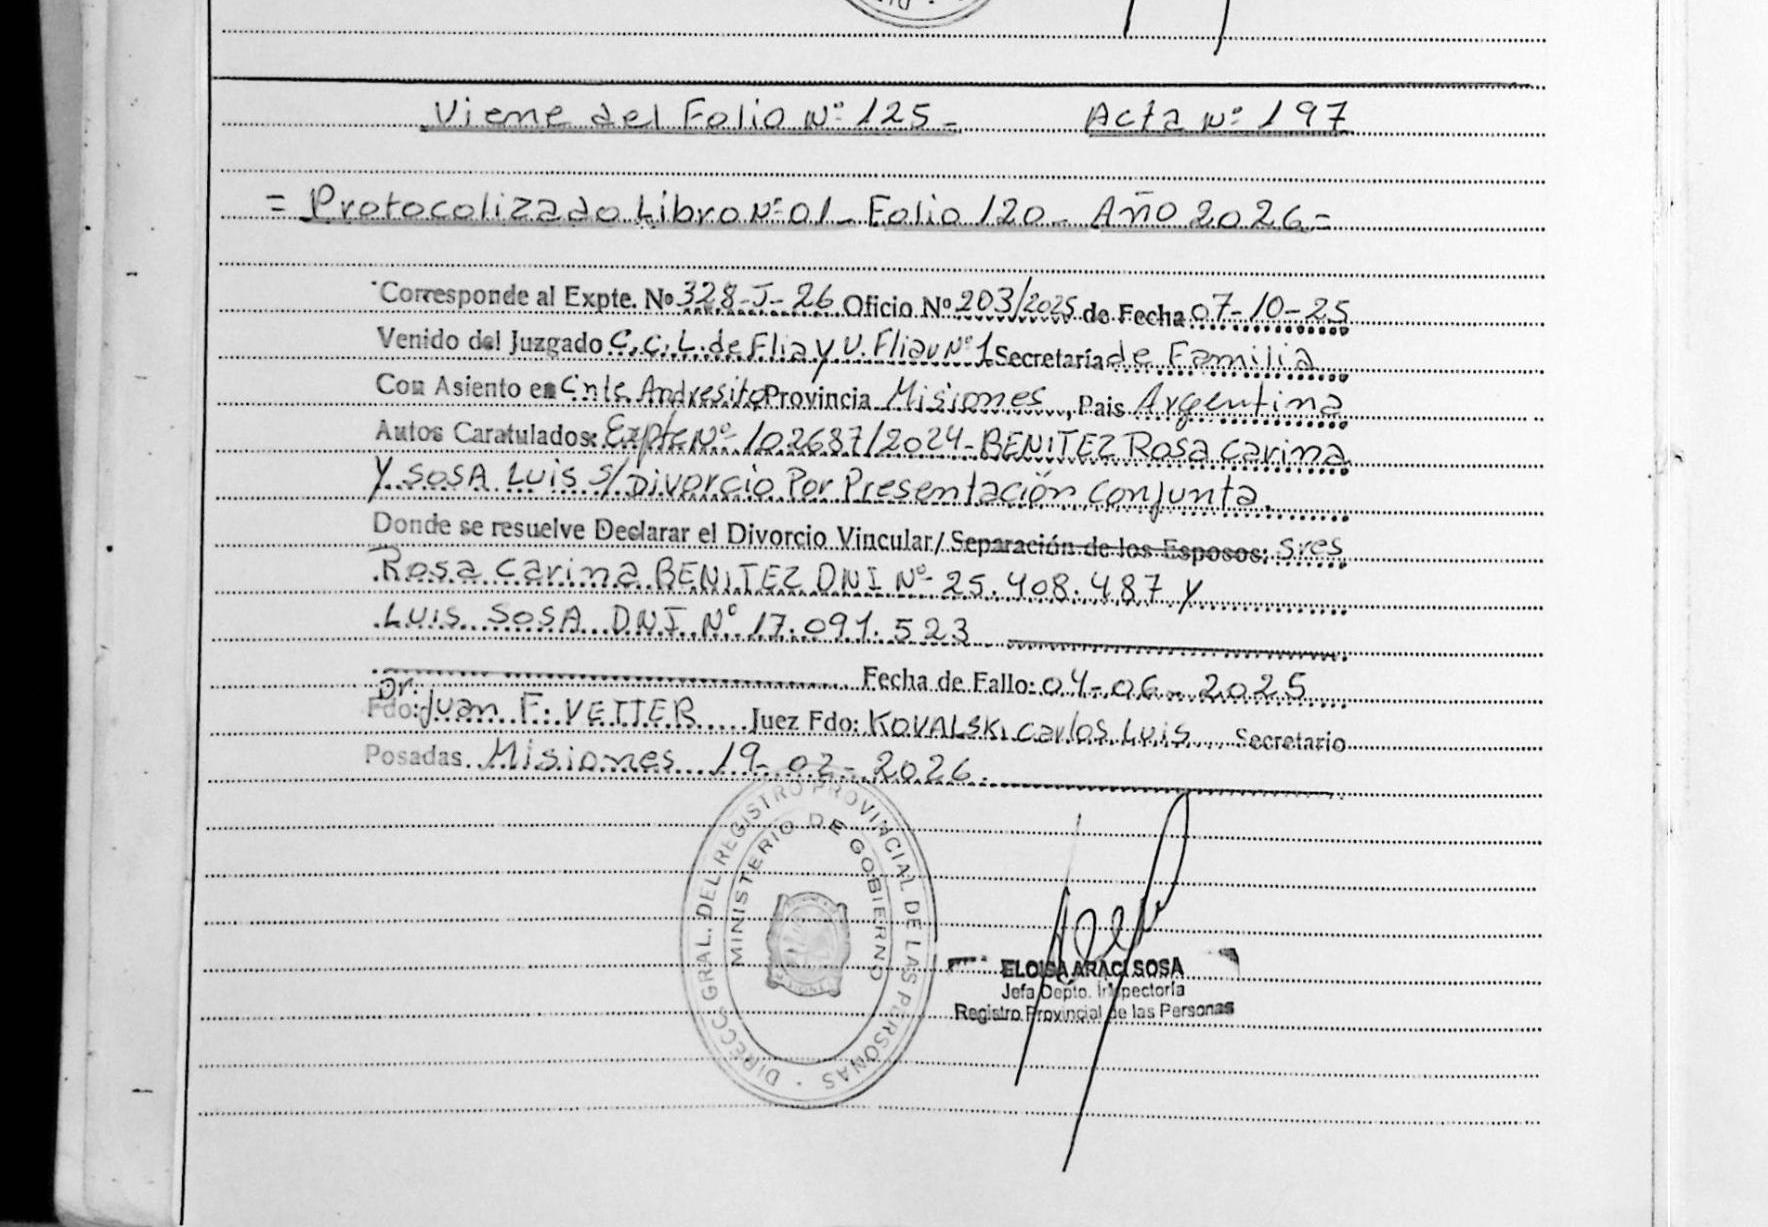 Viene del Folio Nº 125 - Acta Nº 197
= Protocolizado Libro Nº 01 - Folio 120 - Año 2026 =
Corresponde al Expte. Nº 328-J-26 Oficio Nº 203/2025 de Fecha 07-10-25
Venido del Juzgado C.C.L. de Flia y V. Fliar Nº 1 Secretaría de Familia
Con Asiento en Cnte. Andresito Provincia Misiones, Pais Argentina
Autos Caratulados: Expte Nº 102687/2024 - BENITEZ Rosa Carina
Y SOSA LUIS S/Divorcio Por Presentación Conjunta.
Donde se resuelve Declarar el Divorcio Vincular/ Separación de los Esposos: Sres
Rosa Carina BENITEZ DNI Nº 25.408.487 y
LUIS SOSA DNI Nº 17.091.523
Fecha de Fallo: 04-06-2025
Fdo: Dr. Juan F. VETTER Juez Fdo: KOVALSKI Carlos Luis Secretario
Posadas Misiones 19-02-2026.
DIRECC. GRAL. DEL REGISTRO PROVINCIAL DE LAS PERSONAS
MINISTERIO DE GOBIERNO
ELOISA ARACI SOSA
Jefa Depto. Inspectoría
Registro Provincial de las Personas